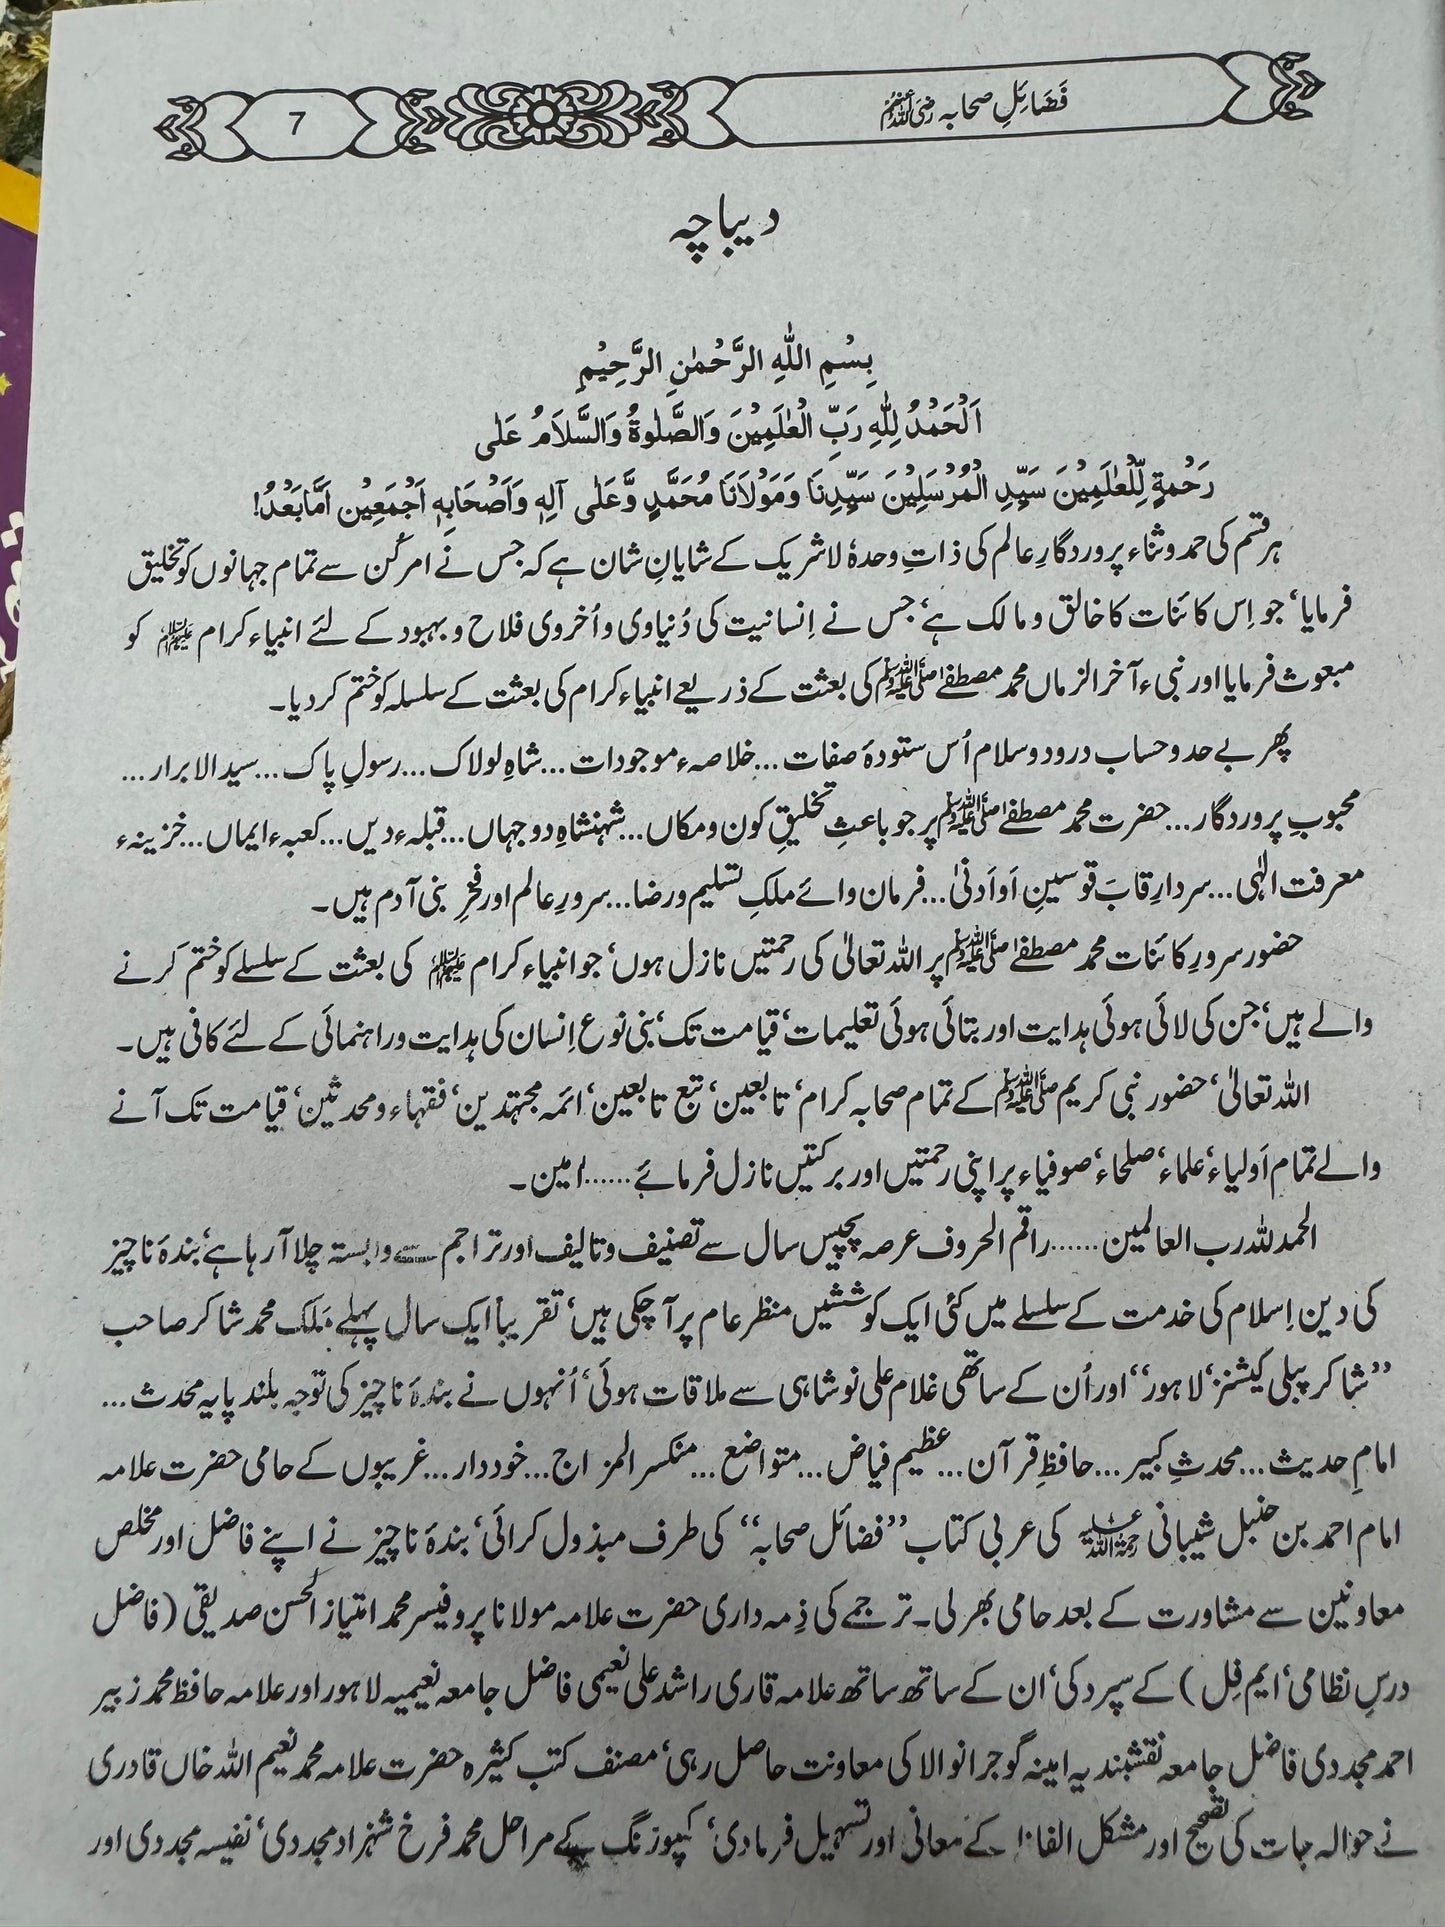 فَضَائلِ صحابہ رضی اللہ عنہم
7
دیباچہ
بِسْمِ اللّٰہِ الرَّحْمٰنِ الرَّحِیْمِ
اَلْحَمْدُ لِلّٰہِ رَبِّ الْعٰلَمِیْنَ وَالصَّلٰوۃُ وَالسَّلَامُ عَلٰی
رَحْمَۃٍ لِّلْعٰلَمِیْنَ سَیِّدِ الْمُرْسَلِیْنَ سَیِّدِنَا وَمَوْلَانَا مُحَمَّدٍ وَّعَلٰی آلِہٖ وَاَصْحَابِہٖ اَجْمَعِیْن اَمَّابَعْدُ!
ہر قسم کی حمد و ثناء پروردگارِ عالم کی ذاتِ وحدہٗ لاشریک کے شایانِ شان ہے کہ جس نے امر کُن سے تمام جہانوں کو تخلیق
فرمایا‘ جو اِس کائنات کا خالق و مالک ہے‘ جس نے اِنسانیت کی دُنیاوی و اُخروی فلاح و بہبود کے لئے انبیاء کرام علیہم السلام کو
مبعوث فرمایا اور نبیء آخر الزماں محمد مصطفےٰ ﷺ کی بعثت کے ذریعے انبیاء کرام کی بعثت کے سلسلہ کو ختم کر دیا۔
پھر بے حد و حساب درود و سلام اُس ستودۂ صفات...خلاصہء موجودات...شاہِ لولاک...رسولِ پاک...سید الابرار...
محبوبِ پروردگار...حضرت محمد مصطفےٰ ﷺ پر جو باعثِ تخلیقِ کون و مکاں...شہنشاہِ دو جہاں...قبلہء دیں...کعبہء ایماں...خزینہء
معرفت الٰہی...سردارِ قابَ قوسینِ اَو اَدنیٰ...فرمان وائے ملکِ تسلیم و رضا...سرورِ عالم اور فخرِ بنی آدم ہیں۔
حضور سرورِ کائنات محمد مصطفےٰ ﷺ پر اللہ تعالیٰ کی رحمتیں نازل ہوں‘ جو انبیاء کرام علیہم السلام کی بعثت کے سلسلے کو ختم کرنے
والے ہیں‘ جن کی لائی ہوئی ہدایت اور بتائی ہوئی تعلیمات‘ قیامت تک‘ بنی نوع اِنسان کی ہدایت و راہنمائی کے لئے کافی ہیں۔
اللہ تعالیٰ‘ حضور نبی کریم ﷺ کے تمام صحابہ کرام‘ تابعین‘ تبع تابعین‘ ائمہ مجتہدین‘ فقہاء و محدثین‘ قیامت تک آنے
والے تمام اَولیاء‘ علماء‘ صلحاء‘ صوفیاء پر اپنی رحمتیں اور برکتیں نازل فرمائے......اٰمین۔
الحمد للہ رب العالمین......راقم الحروف عرصہ پچیس سال سے تصنیف و تالیف اور تراجم سے وابستہ چلا آ رہا ہے‘ بندہَ ناچیز
کی دین اِسلام کی خدمت کے سلسلے میں کئی ایک کوششیں منظر عام پر آ چکی ہیں‘ تقریباً ایک سال پہلے مَلک محمد شاکر صاحب
’’شاکر پبلی کیشنز‘ لاہور‘‘ اور اُن کے ساتھی غلام علی نوشاہی سے ملاقات ہوئی‘ اُنہوں نے بندہَ ناچیز کی توجہ بلند پایہ محدث...
امامِ حدیث...محدثِ کبیر...حافظِ قرآن...عظیم فیاض...متواضع...منکسر المزاج...خوددار...غریبوں کے حامی حضرت علامہ
امام احمد بن حنبل شیبانی رحمۃ اللہ علیہ کی عربی کتاب ’’فضائل صحابہ‘‘ کی طرف مبذول کرائی‘ بندہَ ناچیز نے اپنے فاضل اور مخلص
معاونین سے مشاورت کے بعد حامی بھر لی۔ ترجمے کی ذِمہ داری حضرت علامہ مولانا پروفیسر محمد امتیاز الحسن صدیقی (فاضل
درسِ نظامی‘ ایم فِل) کے سپرد کی‘ ان کے ساتھ ساتھ علامہ قاری راشد علی نعیمی فاضل جامعہ نعیمیہ لاہور اور علامہ حافظ محمد زبیر
احمد مجددی فاضل جامعہ نقشبندیہ امینہ گوجرانوالا کی معاونت حاصل رہی‘ مصنف کتب کثیرہ حضرت علامہ محمد نعیم اللہ خاں قادری
نے حوالہ جات کی تصحیح اور مشکل الفاظ کے معانی اور تسہیل فرما دی‘ کمپوزنگ کے مراحل محمد فرخ شہزاد مجددی‘ نفیسہ مجددی اور